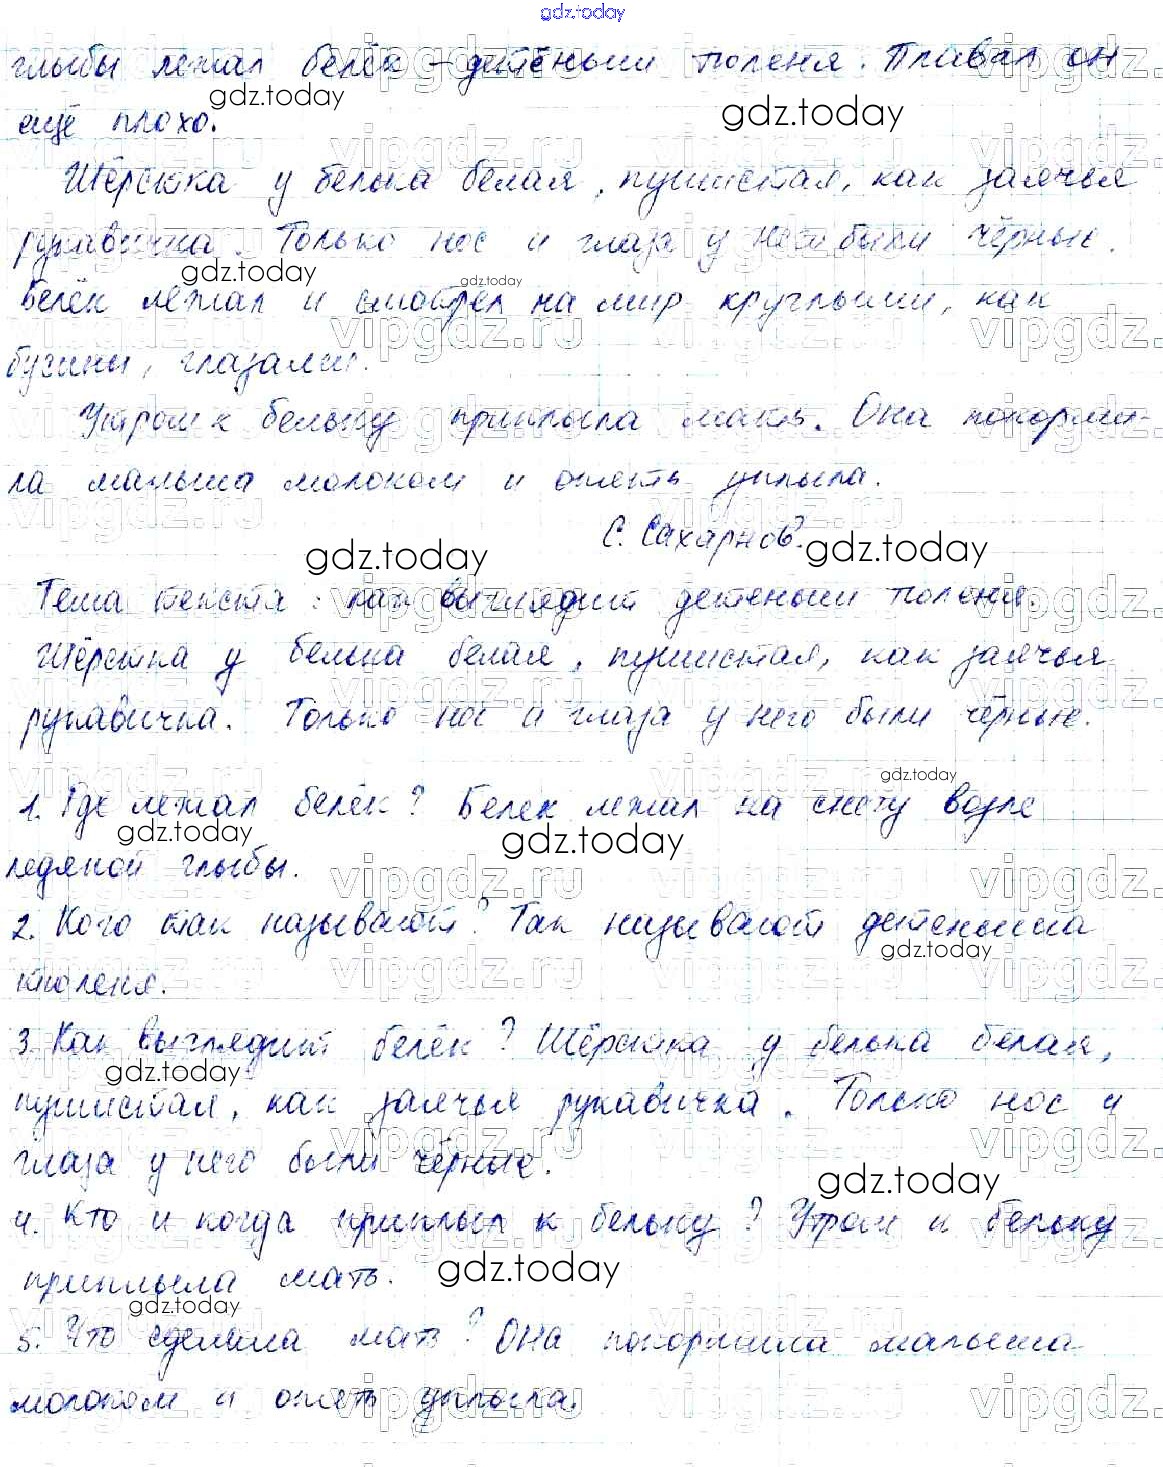 gdz.today
глыбы лежал белёк – детёныш тюленя. Плавал он
ещё плохо.
Шёрстка у белька белая, пушистая, как заячья
рукавичка. Только нос и глаза у него были чёрные.
Белёк лежал и смотрел на мир круглыми, как
бусины, глазами.
Утром к бельку приплыла мать. Она покорми-
ла малыша молоком и опять уплыла.
С. Сахарнов.
Тема текста: как выглядит детеныш тюленя.
Шёрстка у белька белая, пушистая, как заячья
рукавичка. Только нос и глаза у него были чёрные.
1. Где лежал белёк? Белек лежал на снегу возле
ледяной глыбы.
2. Кого так называют? Так называют детеныша
тюленя.
3. Как выглядит белёк? Шёрстка у белька белая,
пушистая, как заячья рукавичка. Только нос и
глаза у него были чёрные.
4. Кто и когда приплыл к бельку? Утром к бельку
приплыла мать.
5. Что сделала мать? Она покормила малыша
молоком и опять уплыла.